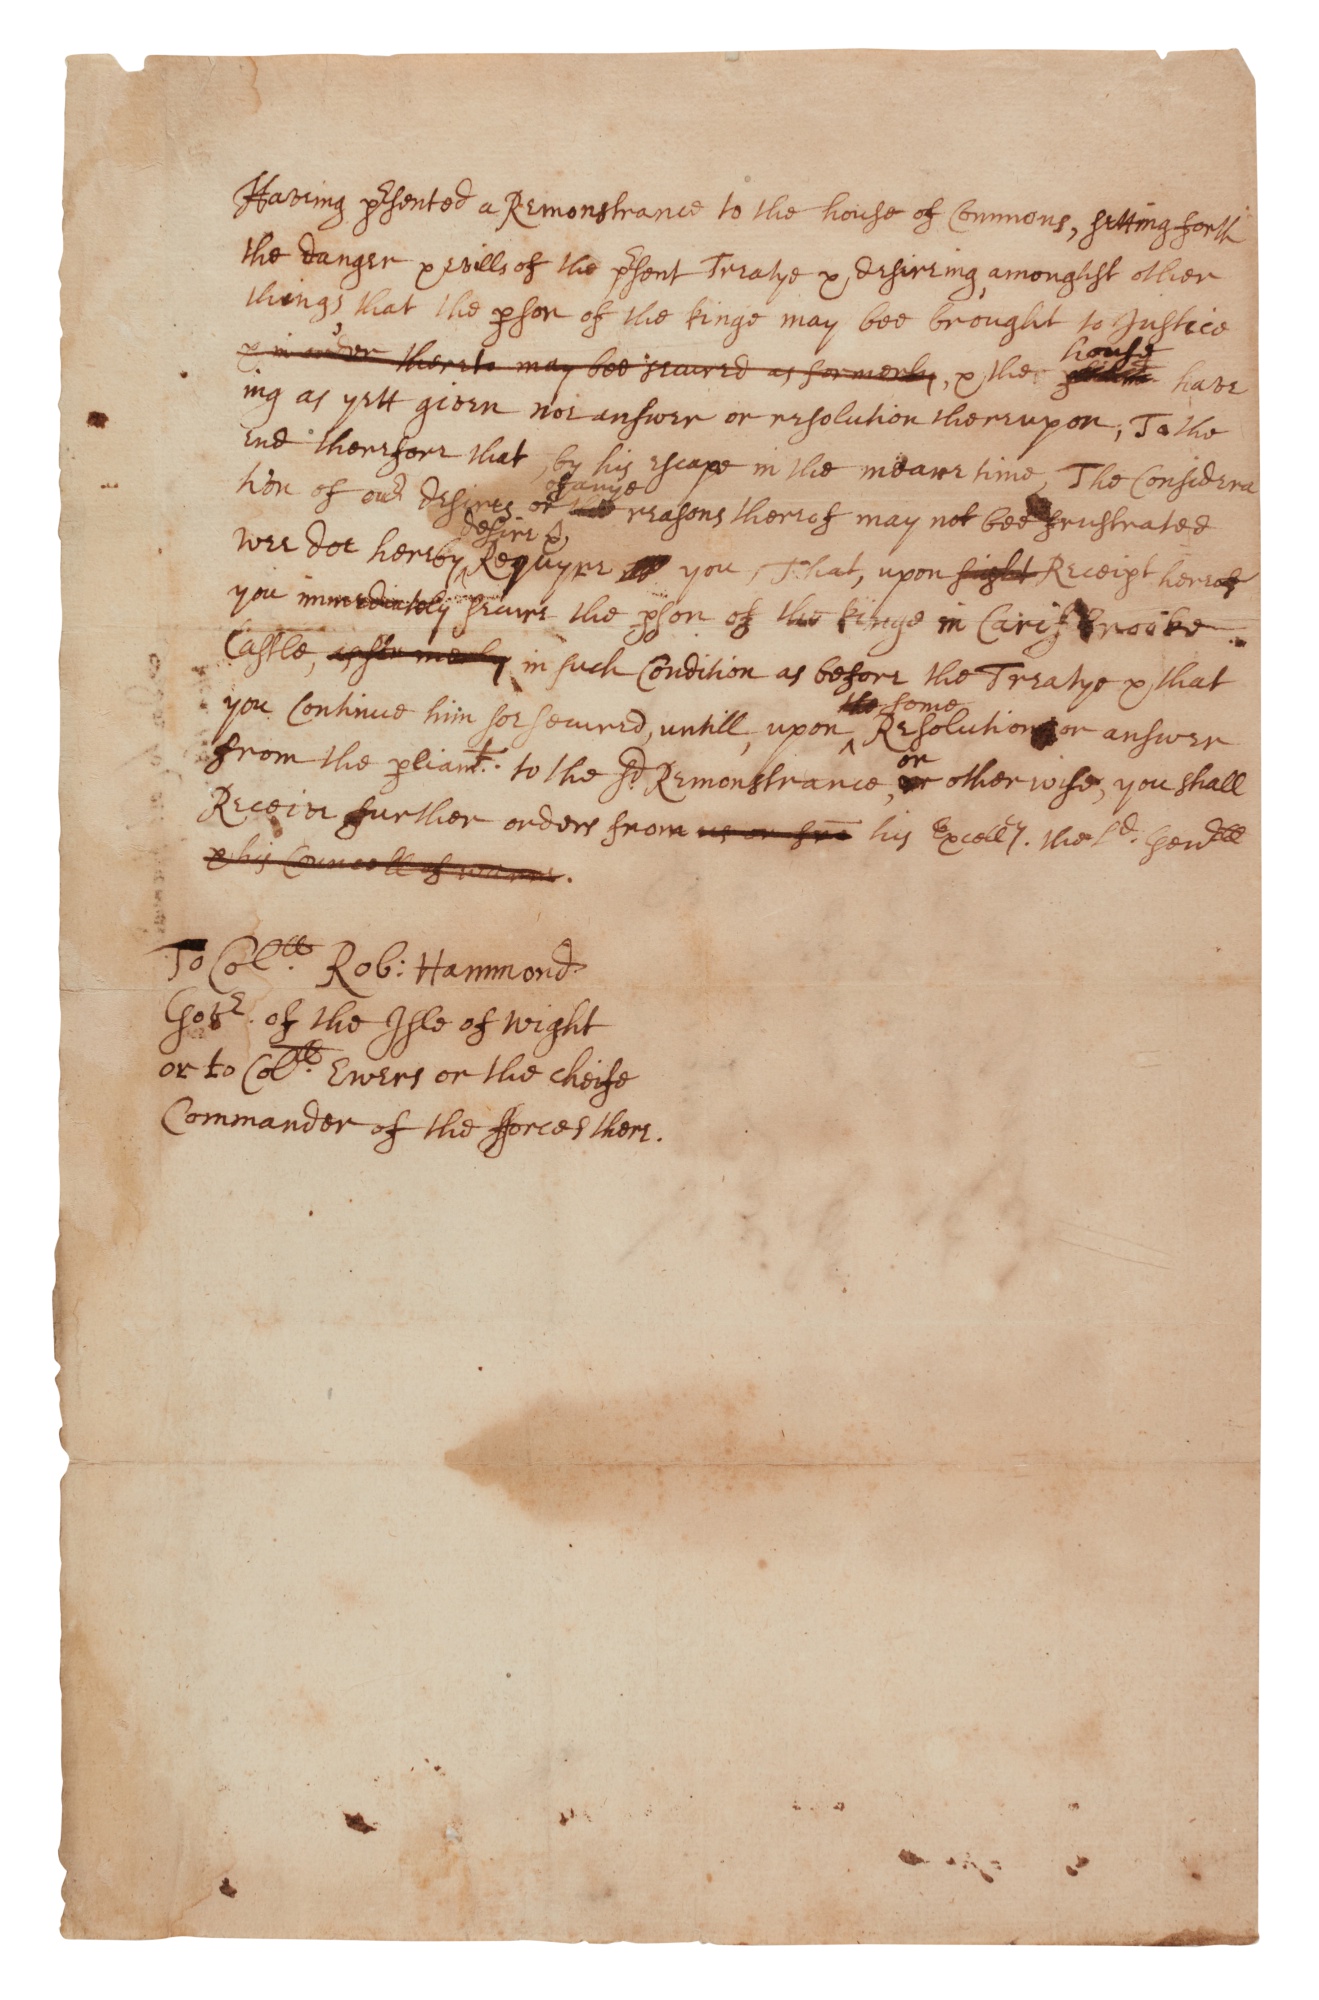 Having p͛sented a Remonstrance to the house of Commons, setting forth
the danger & evills of the p͛sent Treatye & desireing, amonghst other
things that the pson of the kinge may bee brought to Justice
& in order thereto may bee secured as formerly, & the house have
ing as yett given noe answer or resolution thereupon, To the
end therefore that, by his escape in the meane time, The Considera
tion of our desires or of anye reasons thereof may not bee frustrated
Wee doe hereby desire & Requyre you, That, upon sight Receipt hereof
you immediately secure the pson of the kinge in Carisbrooke
Castle, as formerly in such Condition as before the Treatye & that
you Continue him soe secured, untill, upon the some Resolution or answer
from the pliamt. to the sd Remonstrance, or otherwise, you shall
Receive further orders from us or frō his Excellcy. the Ld. Genrll
& his Councell of warre.
To Colll. Rob: Hammond
Govr. of the Isle of Wight
or to Colll. Ewers or the cheife
Commander of the fforces there.